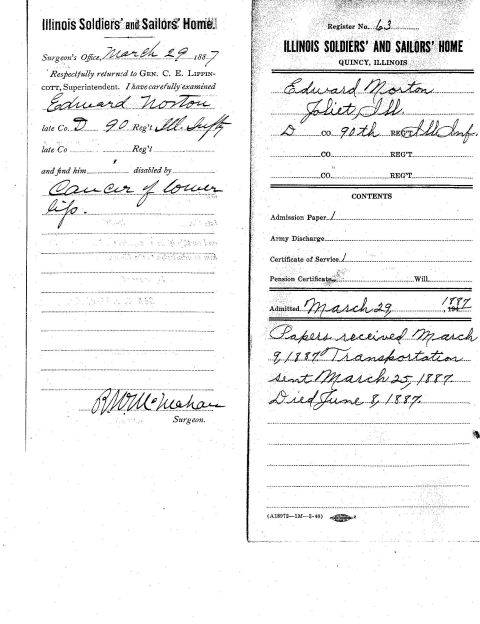 Illinois Soldiers' and Sailors' Home.
Surgeon's Office, March 29 1887
Respectfully returned to GEN. C. E. LIPPIN-
COTT, Superintendent. I have carefully examined
Edward Norton
late Co. D 90 Reg't Ill. Infty
late Co Reg't
and find him disabled by
Cancer of lower
lip.
McMahan
Surgeon.
Register No. 63
ILLINOIS SOLDIERS' AND SAILORS' HOME
QUINCY, ILLINOIS
Edward Norton
Joliet, Ill.
D CO. 90th REG'T Ill Inf.
CO. REG'T.
CO. REG'T.
CONTENTS
Admission Paper 1
Army Discharge
Certificate of Service 1
Pension Certificate Will
Admitted March 29, 1887
Papers received March
9, 1887 Transportation
sent March 25, 1887.
Died June 8, 1887.
(A18972—1M—5-46)